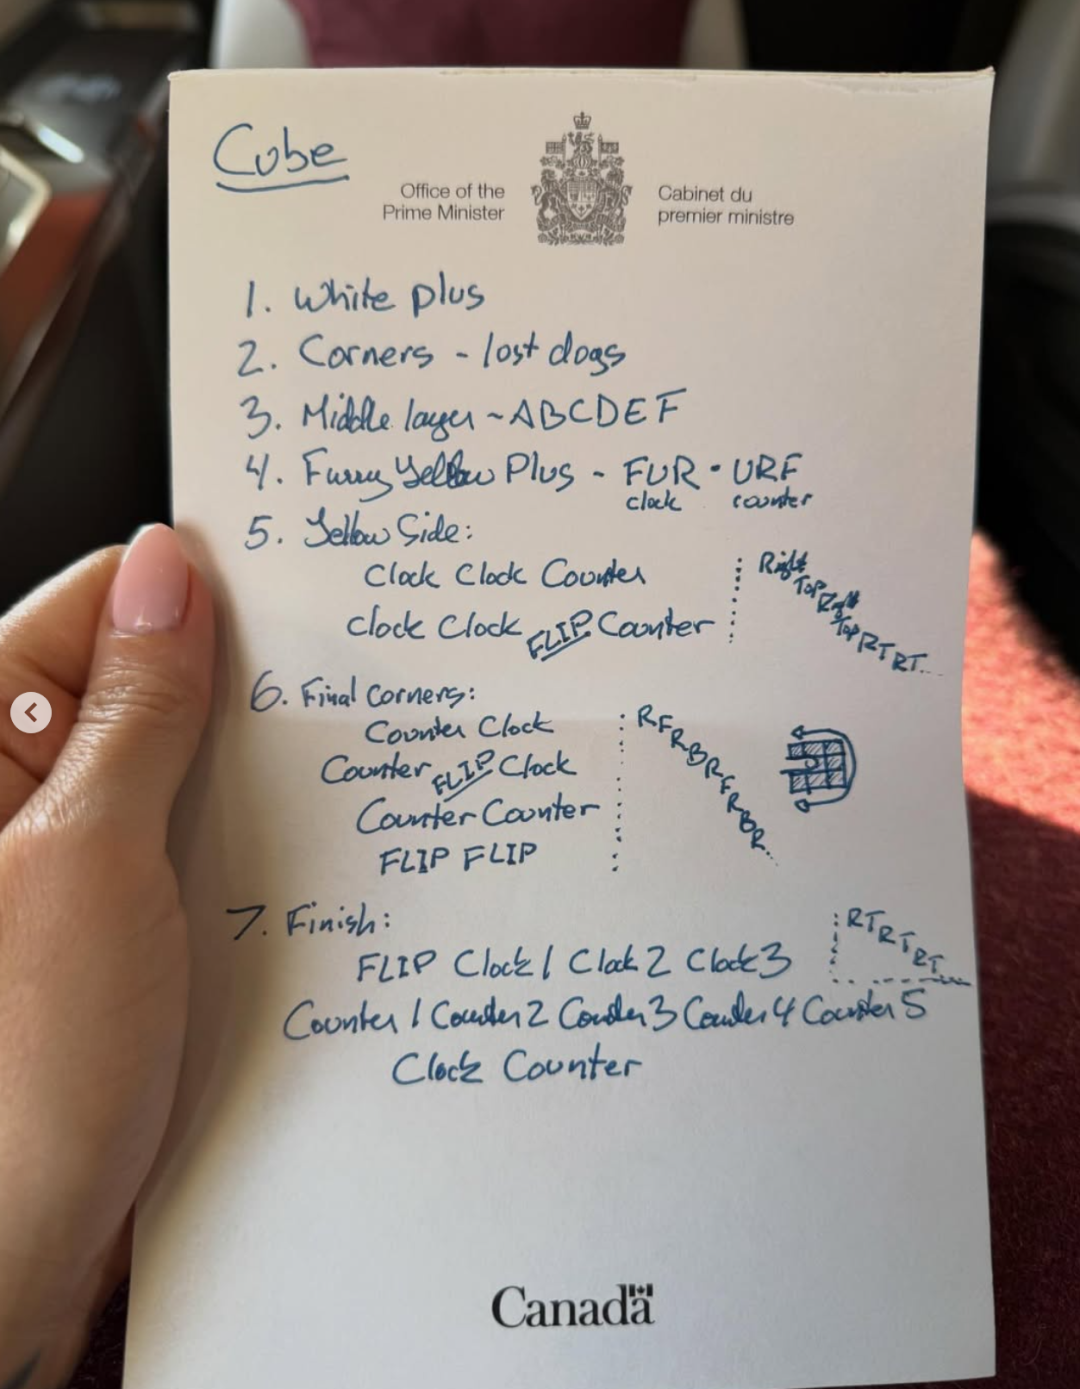 Cube
Office of the
Prime Minister
Cabinet du
premier ministre
1. White plus
2. Corners - lost dogs
3. Middle layer - ABCDEF
4. Furry Yellow Plus - FUR · URF
clock counter
5. Yellow Side:
Clock Clock Counter
Clock Clock FLIP Counter
Right
Top
Right
Top
RT
RT...
6. Final Corners:
Counter Clock
Counter FLIP Clock
Counter Counter
FLIP FLIP
RFRBRFRBR...
7. Finish:
FLIP Clock 1 Clock 2 Clock 3
RTRTRT
Counter 1 Counter 2 Counter 3 Counter 4 Counter 5
Clock Counter
Canada